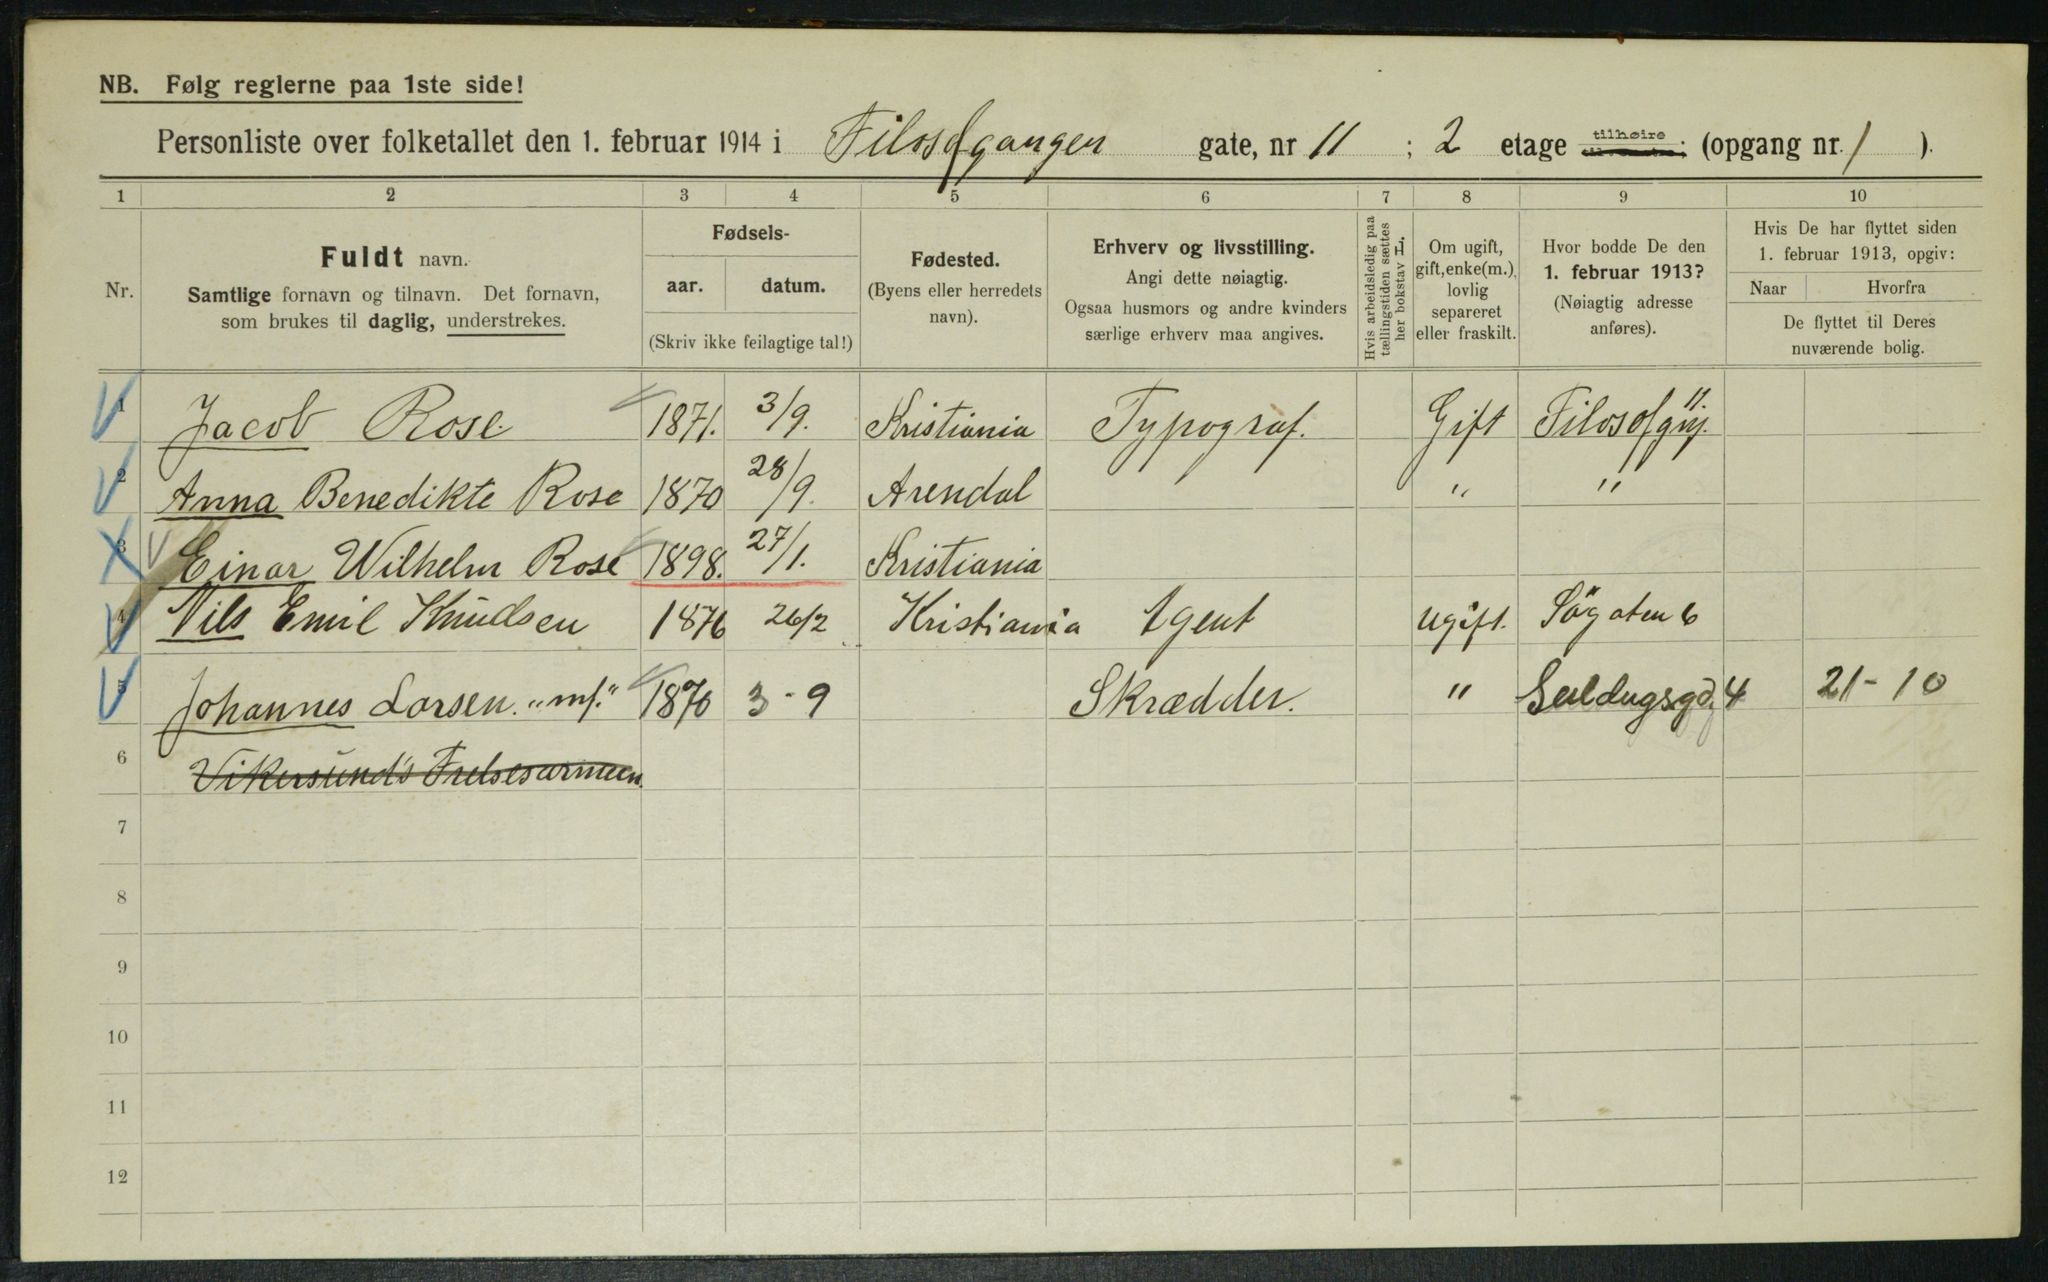 NB. Følg reglerne paa 1ste side!
Personliste over folketallet den 1. februar 1914 i Filosofgangen gate, nr 11 ; 2 etage tilhøire (opgang nr. 1 ).
1 2 3 4 5 6 7 8 9 10
Nr.
Fuldt navn.
Samtlige fornavn og tilnavn. Det fornavn,
som brukes til daglig, understrekes.
Fødsels-
aar. datum.
(Skriv ikke feilagtige tal!)
Fødested.
(Byens eller herredets
navn).
Erhverv og livsstilling.
Angi dette nøiagtig.
Ogsaa husmors og andre kvinders
særlige erhverv maa angives.
Hvis arbeidsledig paa
tællingstiden sættes
her bokstav L.
Om ugift,
gift, enke(m.),
lovlig
separeret
eller fraskilt.
Hvor bodde De den
1. februar 1913?
(Nøiagtig adresse
anføres).
Hvis De har flyttet siden
1. februar 1913, opgiv:
Naar Hvorfra
De flyttet til Deres
nuværende bolig.
1 Jacob Rose. 1871. 3/9. Kristiania Typograf. Gift Filosofgg. 11.
2 Anna Benedikte Rose 1870 28/9. Arendal " "
3 Einar Wilhelm Rose 1898. 27/1. Kristiania
4 Nils Emil Knudsen 1876 26/2 Kristiania Agent Ugift. Søgaten 6
5 Johannes Larsen. 1870 3-9 Skrædder. " 4 21-10
6 Vikersund's Frelsesarmeen.
7
8
9
10
11
12